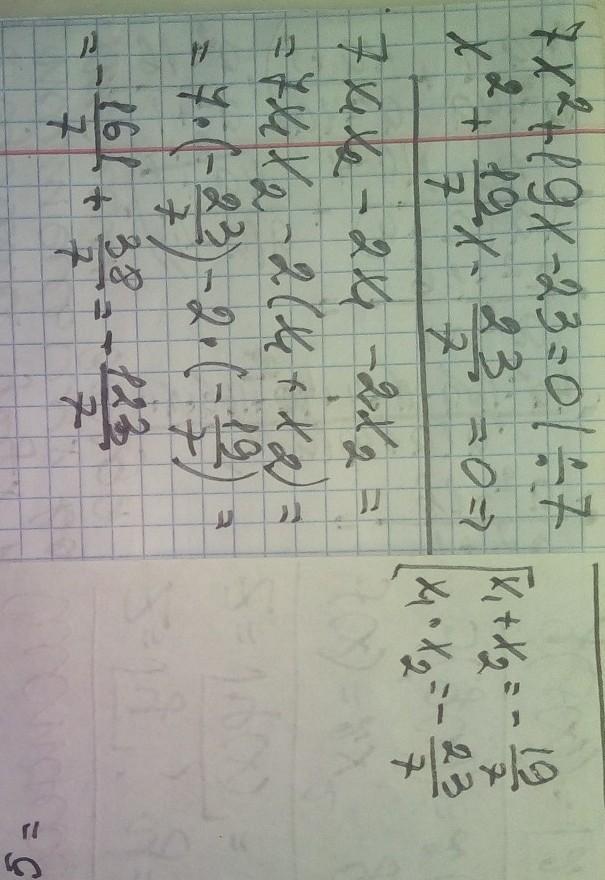 7x² + 19x - 23 = 0 | ÷ 7
x² + 19/7 x - 23/7 = 0 ⇒
[ x₁ + x₂ = - 19/7
x₁ · x₂ = - 23/7
7x₁x₂ - 2x₁ - 2x₂ =
= 7x₁x₂ - 2(x₁ + x₂) =
= 7 · (- 23/7) - 2 · (- 19/7) =
= - 161/7 + 38/7 = - 123/7